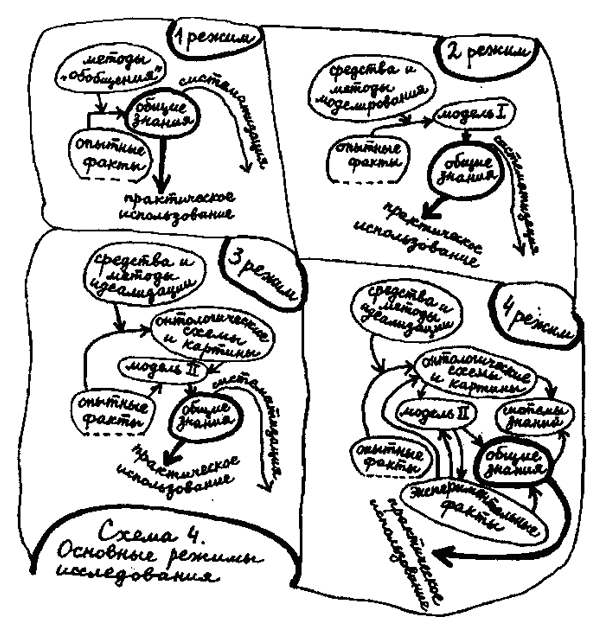 1 режим
методы
„обобщения"
систематизация
общие
знания
опытные
факты
практическое
использование
2 режим
средства и
методы
моделирования
модель I
опытные
факты
общие
знания
систематизация
практическое
использование
3 режим
средства и
методы
идеализации
онтологические
схемы
и картины
модель II
систематизация
опытные
факты
общие
знания
практическое
использование
4 режим
средства и
методы
идеализации
онтологические
схемы
и картины
модель II
системы
знаний
опытные
факты
общие
знания
экспериментальные
факты
практическое
использование
Схема 4.
Основные режимы
исследования